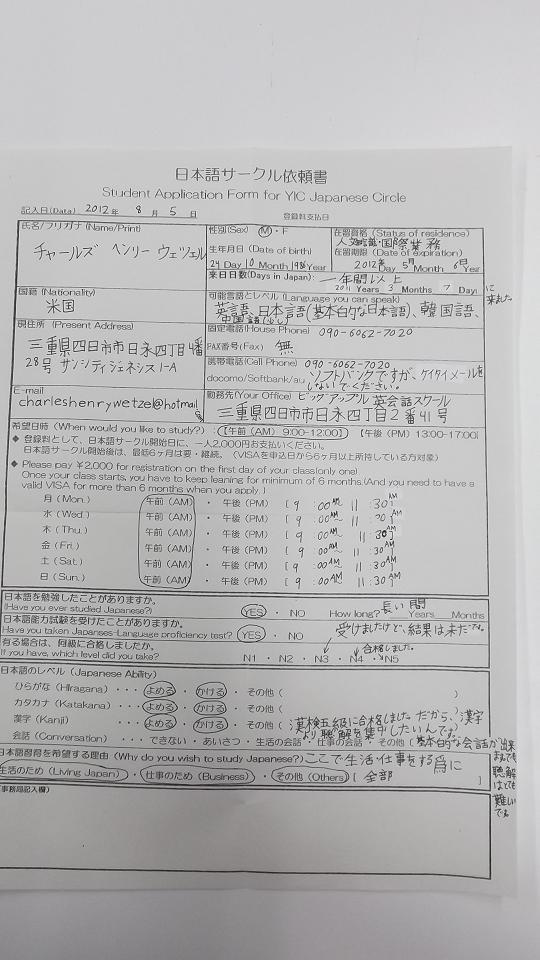 日本語サークル依頼書
Student Application Form for YIC Japanese Circle
記入日(Data) 2012年 8月 5日
登録料支払日
氏名/フリガナ (Name/Print)
チャールズ ヘンリー ウェツェル
性別(Sex) M・F
生年月日 (Date of birth)
24 Day 10 Month 1986 Year
在留資格 (Status of residence)
人文知識・国際業務
在留期限 (Date of expiration)
2012年 Day 5月 Month 6日 Year
来日日数(Days in Japan): 一年間以上
2011 Years 3 Months 7 Days に来ました
国籍 (Nationality)
米国
可能言語とレベル (Language you can speak)
英語、日本語(基本的な日本語)、韓国語、
中国語(少し)
現住所 (Present Address)
三重県四日市市日永四丁目4番
28号 サンシティジェネンス1-A
固定電話(House Phone) 090-6062-7020
FAX番号(Fax) 無
携帯電話(Cell Phone) 090-6062-7020
docomo/Softbank/au ソフトバンクですが、ケイタイメールを
しないでください。
E-mail
charleshenrywetzel@hotmail
勤務先(Your Office) ビッグアップル 英会話スクール
三重県四日市市日永四丁目2番41号
希望日時 (When would you like to study?) :【午前 (AM) 9:00-12:00】 【午後 (PM) 13:00-17:00】
◆ 登録料として、日本語サークル開始日に、一人2,000円お支払いください。
日本語サークル開始後は、最低6ヶ月は要・継続。 (VISAを申込日から6ヶ月以上所持している方対象)
◆ Please pay ¥2,000 for registration on the first day of your class(only one)
Once your class starts, you have to keep leaning for minimum of 6 months.(And you need to have a
valid VISA for more than 6 months when you apply.)
月 (Mon.) 午前 (AM) ・ 午後 (PM) [ 9 :00AM 11 :30] AM
水 (Wed.) 午前 (AM) ・ 午後 (PM) [ 9 :00AM 11 :30] AM
木 (Thu.) 午前 (AM) ・ 午後 (PM) [ 9 :00AM 11 :30] AM
金 (Fri.) 午前 (AM) ・ 午後 (PM) [ 9 :00AM 11 :30] AM
土 (Sat.) 午前 (AM) ・ 午後 (PM) [ 9 :00AM 11 :30] AM
日 (Sun.) 午前 (AM) ・ 午後 (PM) [ 9 :00AM 11 :30] AM
日本語を勉強したことがありますか。
(Have you ever studied Japanese?) YES ・ NO How long? 長い間 Years Months
日本語能力試験を受けたことがありますか。
Have you taken Japanses-Language proficiency test? YES ・ NO 受けましたけど、結果は未だです。
有る場合は、何級に合格しましたか。 合格しました。
If you have, which level did you take? N1 ・ N2 ・ N3 ・ N4 ・ N5
日本語のレベル (Japanese Ability)
ひらがな (Hiragana) ・・・ よめる ・ かける ・ その他 ( )
カタカナ (Katakana) ・・・ よめる ・ かける ・ その他 ( )
漢字 (Kanji) ・・・ よめる ・ かける ・ その他 ( 漢検五級に合格しました だから、漢字
より聴解を集中したいんです。
会話 (Conversation) ・・・ できない ・ あいさつ ・ 生活の会話 ・ 仕事の会話 ・ その他 [ 基本的な会話が出来
ますでも
聴解
はとても
難しい
です
日本語習得を希望する理由 (Why do you wish to study Japanese?) ここで生活・仕事をする為に
生活のため (Living Japan) ・ 仕事のため (Business) ・ その他 (Others) [ 全部 ]
事務局記入欄)